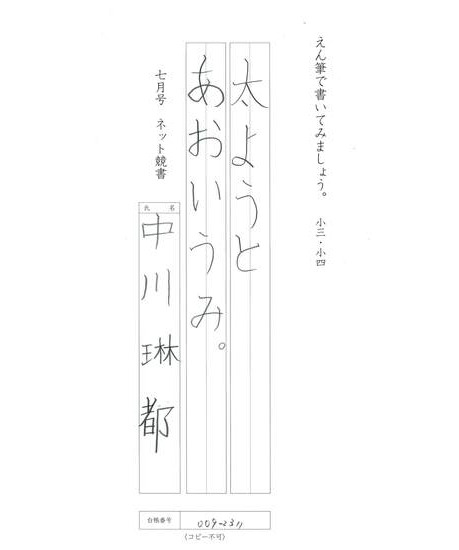 えん筆で書いてみましょう。 小三・小四
太ようと
あおいうみ。
七月号 ネット競書
氏名
中川琳都
台帳番号 009-2311
(コピー不可)